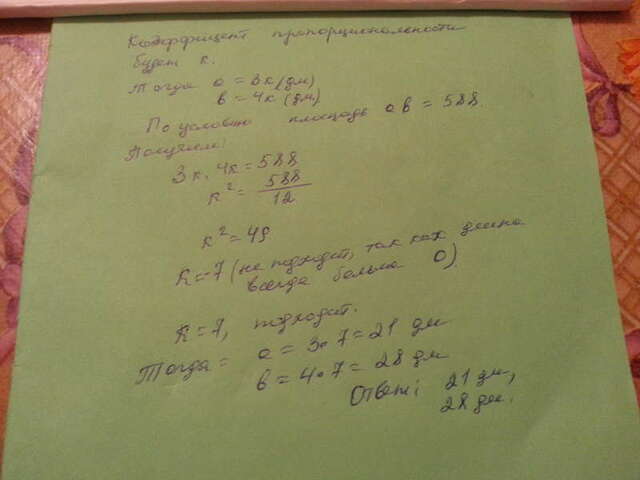 Коэффициент пропорциональности
будет к.
Тогда a = 3к (дм)
b = 4к (дм)
По условию площадь ab = 588.
Получаем:
3к · 4к = 588
к² = 588/12
к² = 49
к = -7 (не подходит, так как длина
всегда больше 0)
к = 7, подходит.
Тогда = a = 3·7 = 21 дм
b = 4·7 = 28 дм
Ответ: 21 дм,
28 дм.